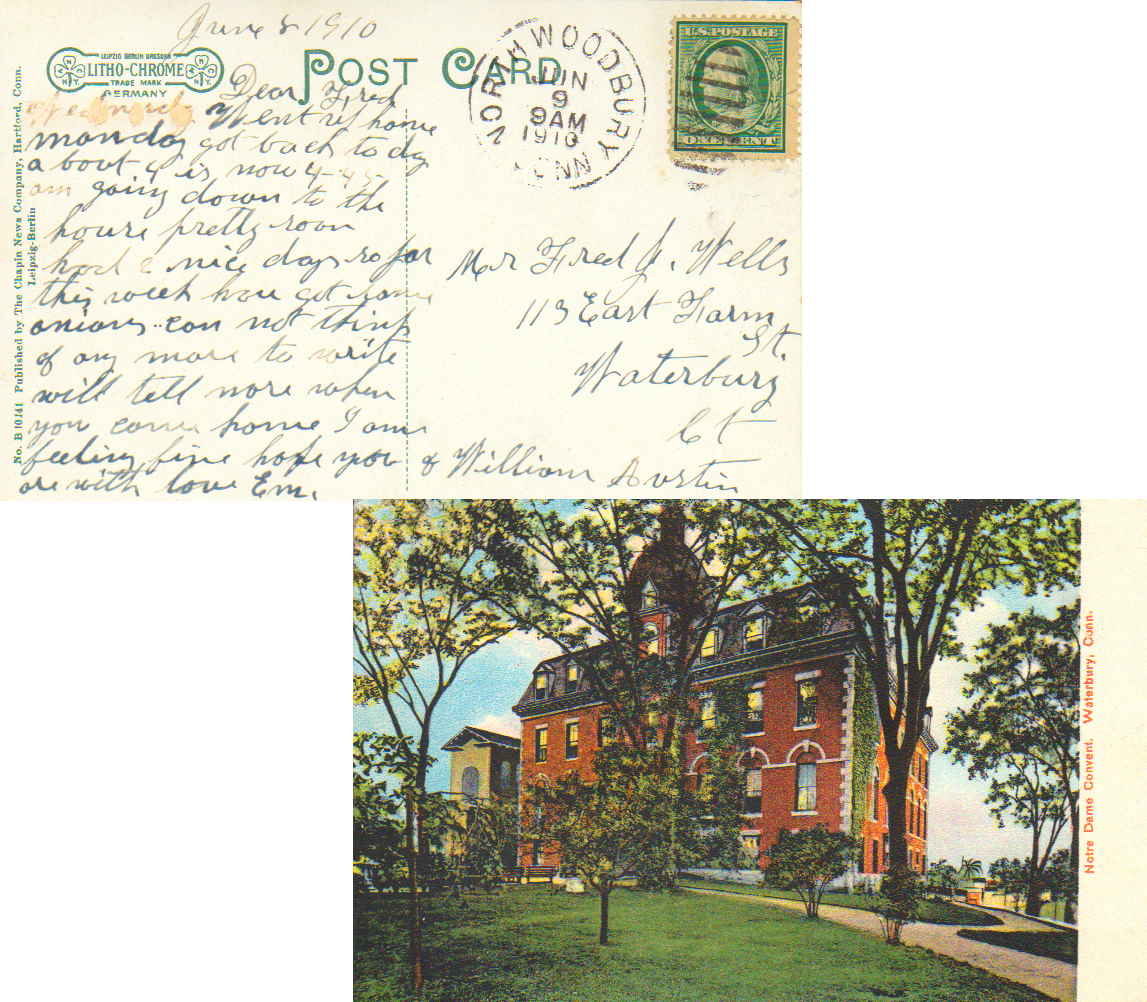 June 8 1910
LEIPZIG BERLIN DRESDEN
LITHO-CHROME
TRADE MARK
GERMANY
POST CARD
NORTH WOODBURY
JUN
9
9AM
1910
CONN
U.S. POSTAGE
ONE CENT
No. B 10141 Published by The Chapin News Company, Hartford, Conn.
Leipzig-Berlin
Dear Fred
Went up home
monday got back to day
about 4 is now 4-45
am going down to the
house pretty soon
had a nice days so far
this week have got some
onions can not think
of any more to write
will tell more when
you come home I am
feeling fine hope you
are with love Em.
& William Austin
Mr Fred J. Wells
113 East Farm
St.
Waterbury
Ct
Notre Dame Convent. Waterbury, Conn.